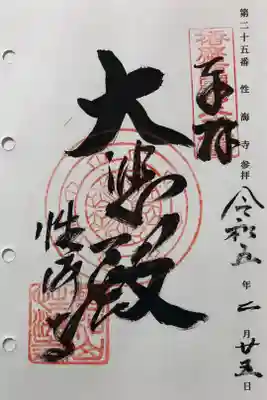 第二十五番 性海寺 参拝
令和五年二月廿五日
奉拝
大悲殿
性海寺